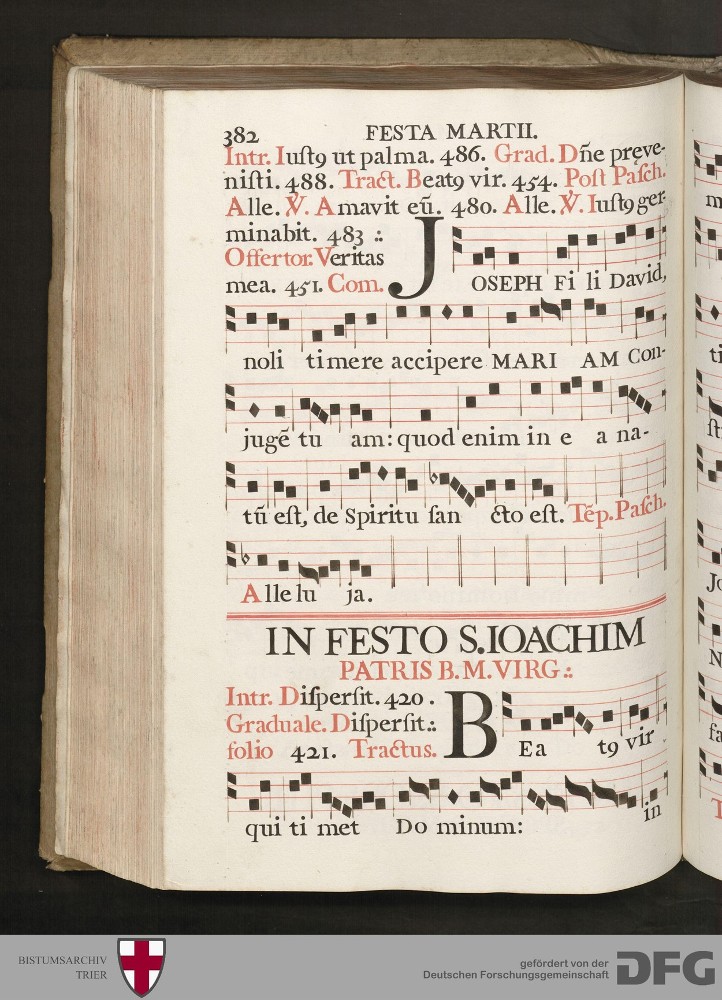 382 FESTA MARTII.
Intr. Iuſtꝯ ut palma. 486. Grad. Dñe pręve-
niſti. 488. Tract. Beatꝯ vir. 454. Poſt Paſch.
Alle. ℣. Amavit eũ. 480. Alle. ℣. Iuſtꝯ ger-
minabit. 483 .:
Offertor: Veritas
mea. 451. Com.
JOSEPH Fi li David,
noli timere accipere MARI AM Con-
jugẽ tu am: quod enim in e a na-
tũ eſt, de Spiritu ſan cto eſt. Tẽp. Paſch.
Alle lu ja.
IN FESTO S. IOACHIM
PATRIS B. M. VIRG .:
Intr. Diſperſit. 420.
Graduale. Diſperſit .:
folio 421. Tractus.
BEa tꝯ vir
qui ti met Do minum: in
BISTUMSARCHIV
TRIER
gefördert von der
Deutschen Forschungsgemeinschaft
DFG